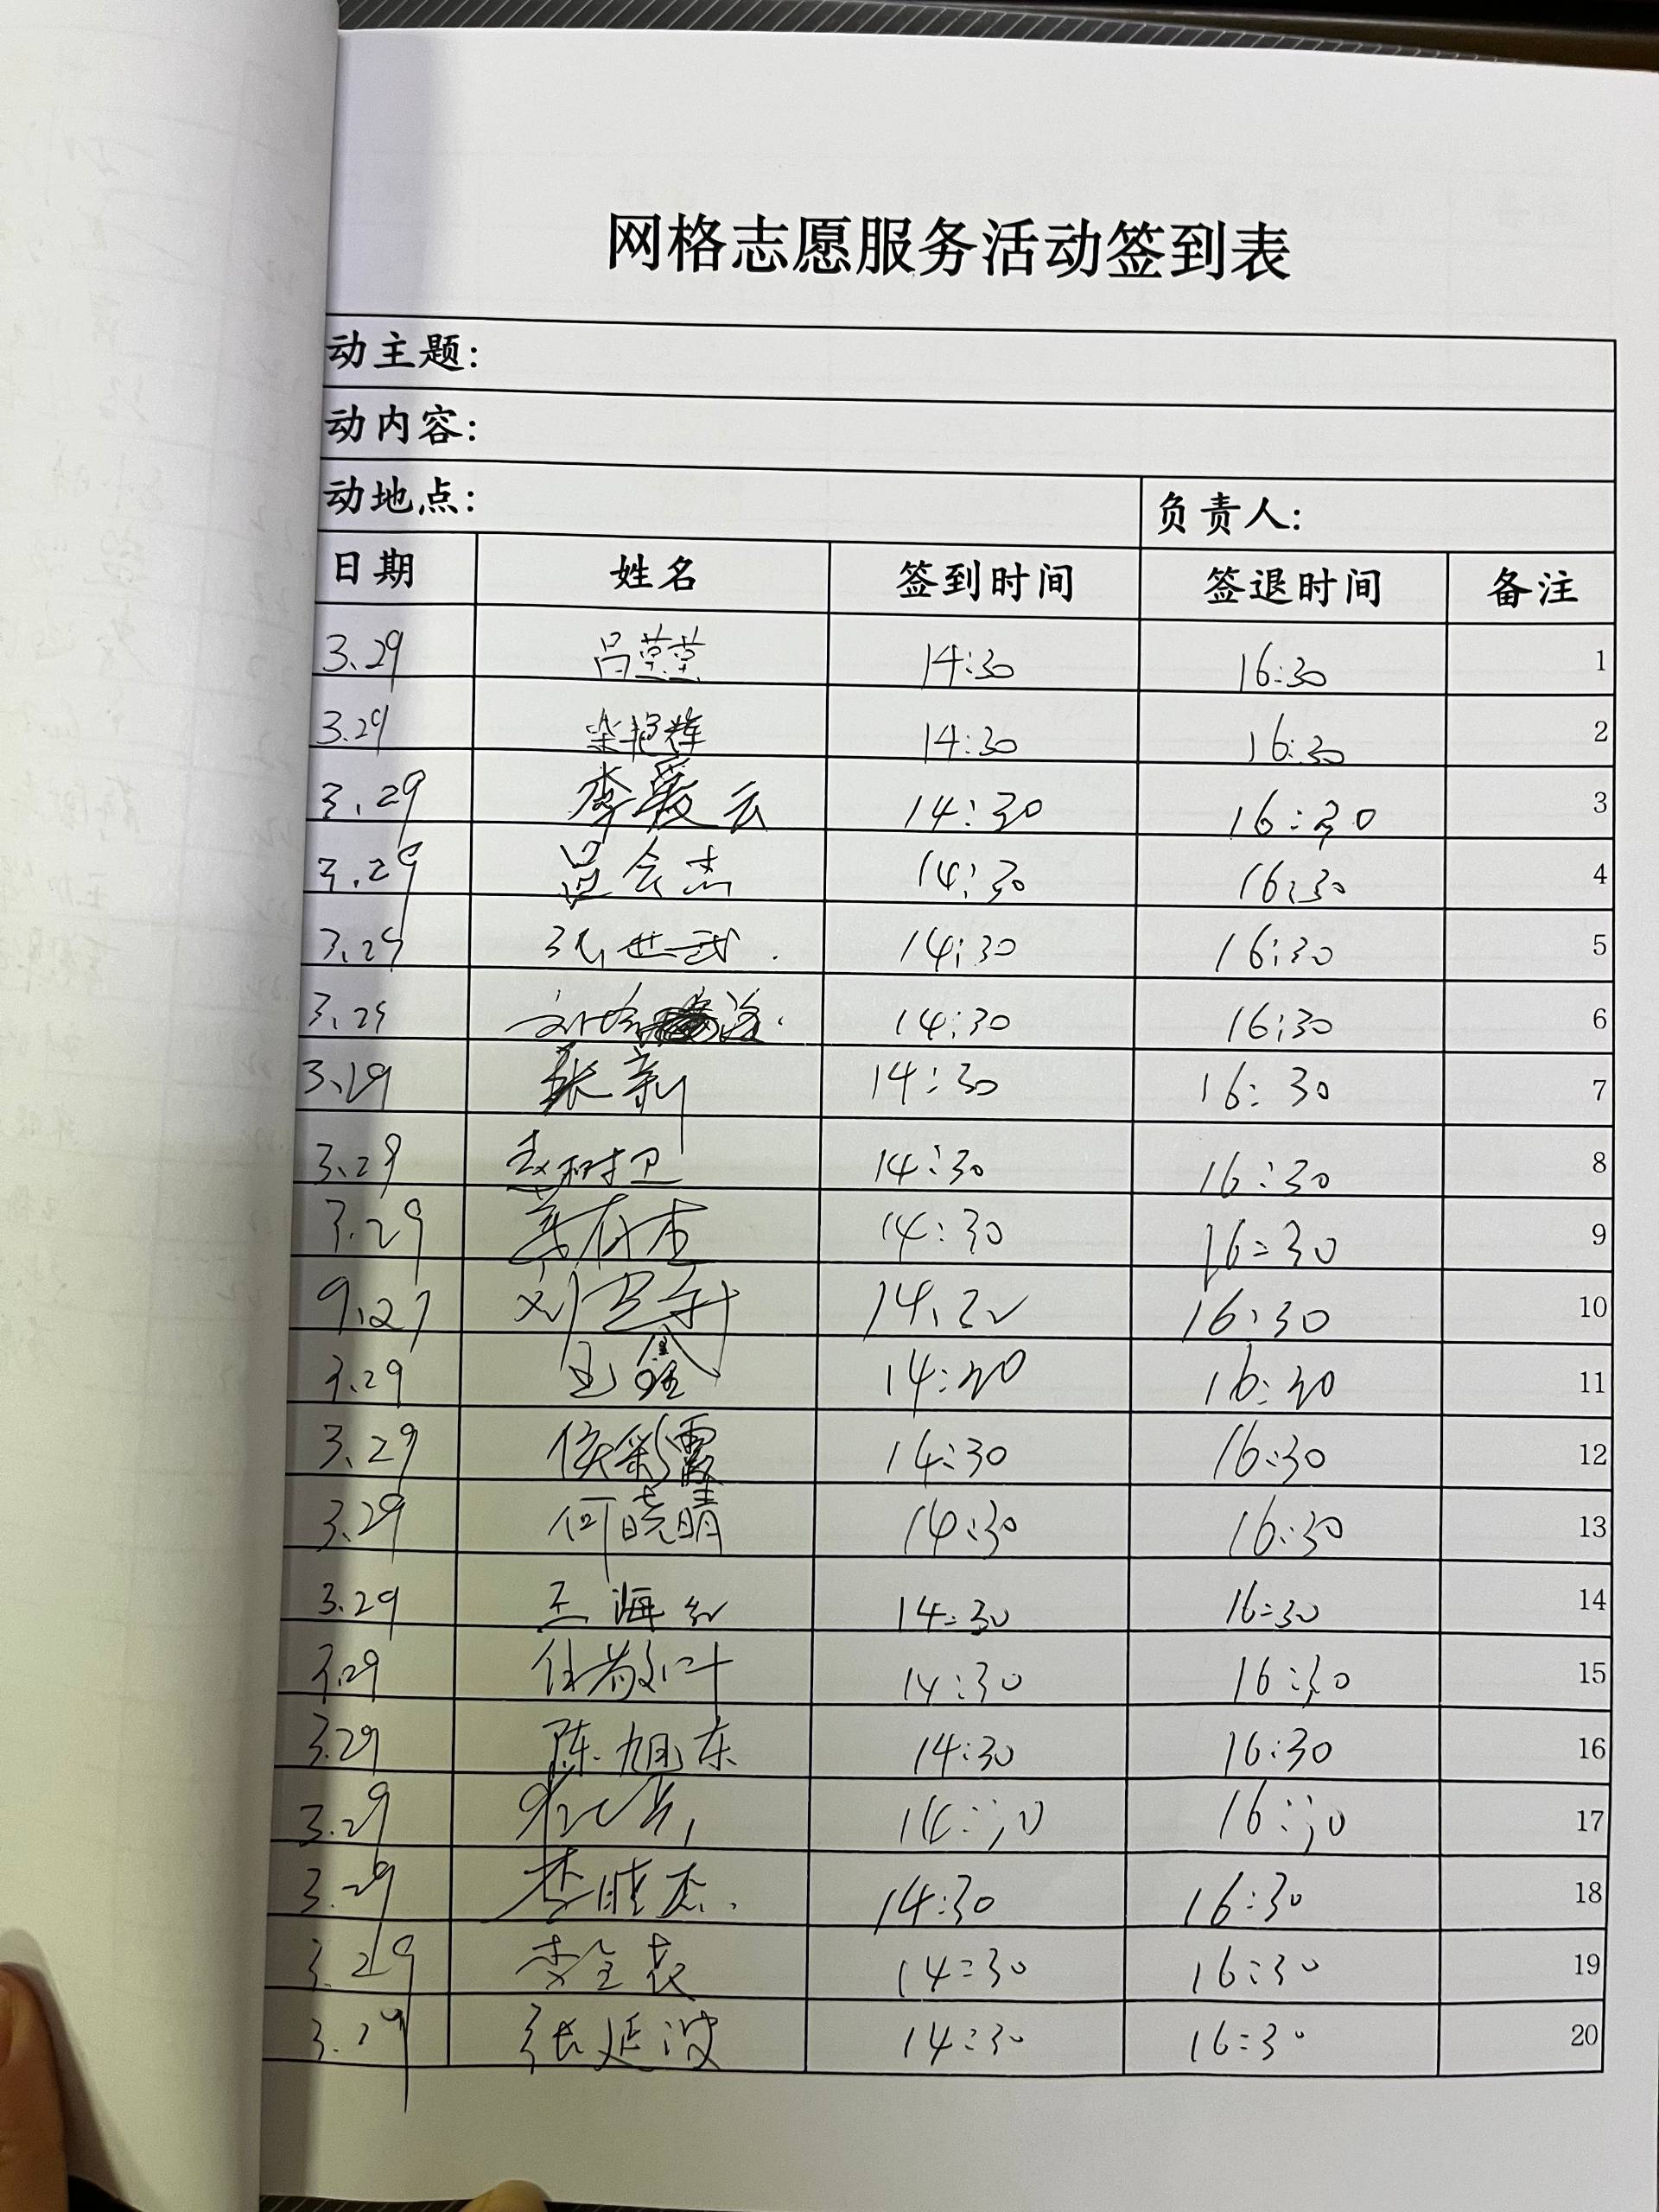 网格志愿服务活动签到表
动主题:
动内容:
动地点: 负责人:
日期 姓名 签到时间 签退时间 备注
3.29 吕莹莹 14:30 16:30 1
3.29 柴艳辉 14:30 16:30 2
3.29 李爱云 14:30 16:30 3
3.29 吕会杰 14:30 16:30 4
3.29 张世武 14:30 16:30 5
3.29 14:30 16:30 6
3.29 张新 14:30 16:30 7
3.29 赵树卫 14:30 16:30 8
3.29 14:30 16:30 9
9.27 刘卫新 16:30 10
3.29 王鑫 14:30 16:30 11
3.29 侯彩霞 14:30 16:30 12
3.29 何晓晴 14:30 16:30 13
3.29 王海红 14:30 16:30 14
3.29 14:30 16:30 15
3.29 陈旭东 14:30 16:30 16
3.29 14:30 16:30 17
3.29 李晓杰 14:30 16:30 18
3.29 李全表 14:30 16:30 19
3.29 张延波 14:30 16:30 20